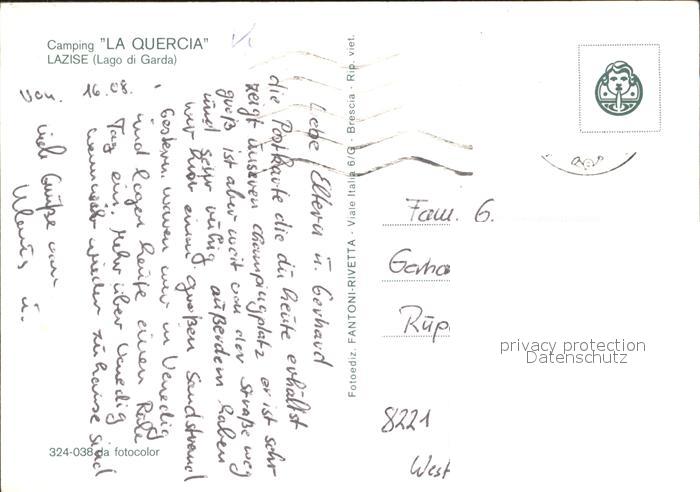 Camping "LA QUERCIA"
LAZISE (Lago di Garda)
Liebe Eltern u. Gerhard
die Postkarte die du heute erhältst
zeigt unseren Campingplatz er ist sehr
groß ist aber weit von der Straße weg
und sehr ruhig. außerdem haben
wir hier einen großen Sandstrand
Gestern waren wir in Venedig
und legen heute einen Ruhe
Tag ein. Mehr über Venedig
wenn wir wieder zuhause sind
16.08.
viele Grüße von
Klaus u.
324-038 da fotocolor
Fotoediz. FANTONI-RIVETTA - Viale Italia 6/G - Brescia - Rip. viet.
Fam. G.
Gerha
Rup
8221
West
privacy protection
Datenschutz